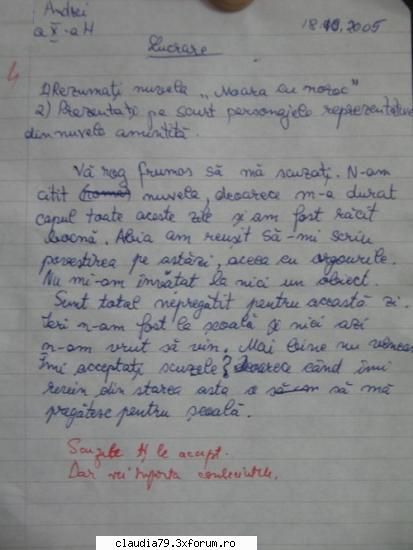 Andrei
a X-a H
18.10.2005
Lucrare
4
1) Rezumați nuvela „Moara cu noroc”
2) Prezentați pe scurt personajele reprezentative
din nuvela amintită.
Vă rog frumos să mă scuzați. N-am
citit nuvela, deoarece m-a durut
capul toate aceste zile și am fost răcit
bocnă. Abia am reușit să-mi scriu
povestirea pe astăzi, aceea cu
Nu mi-am învățat la nici un obiect.
Sunt total nepregătit pentru această zi.
Ieri n-am fost la școală și nici azi
n-am vrut să vin. Mai bine nu veneam.
Îmi acceptați scuzele? Deoarece când îmi
revin din starea asta o să mă
pregătesc pentru școală.
Scuzele ți le accept.
Dar vei suporta consecințele.
claudia79.3xforum.ro